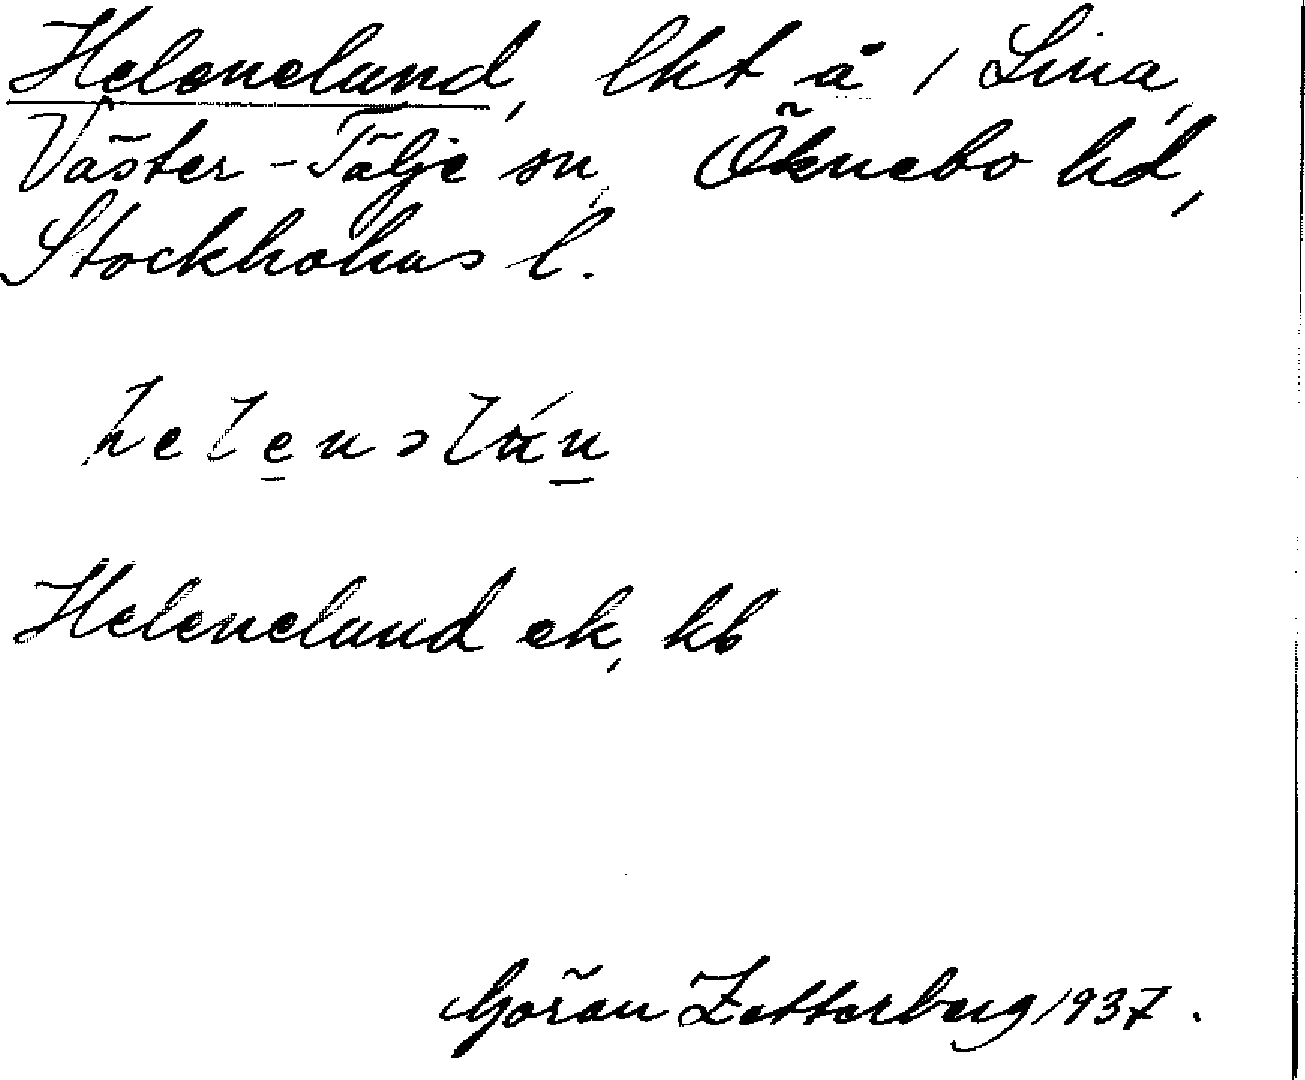 Heleneland, lkt å 1 Lina,
Väster-Tälje sn, Öknebo hd,
Stockholms l.
helenəlán
Heleneland ek, kb
Göran Zetterberg 1937.